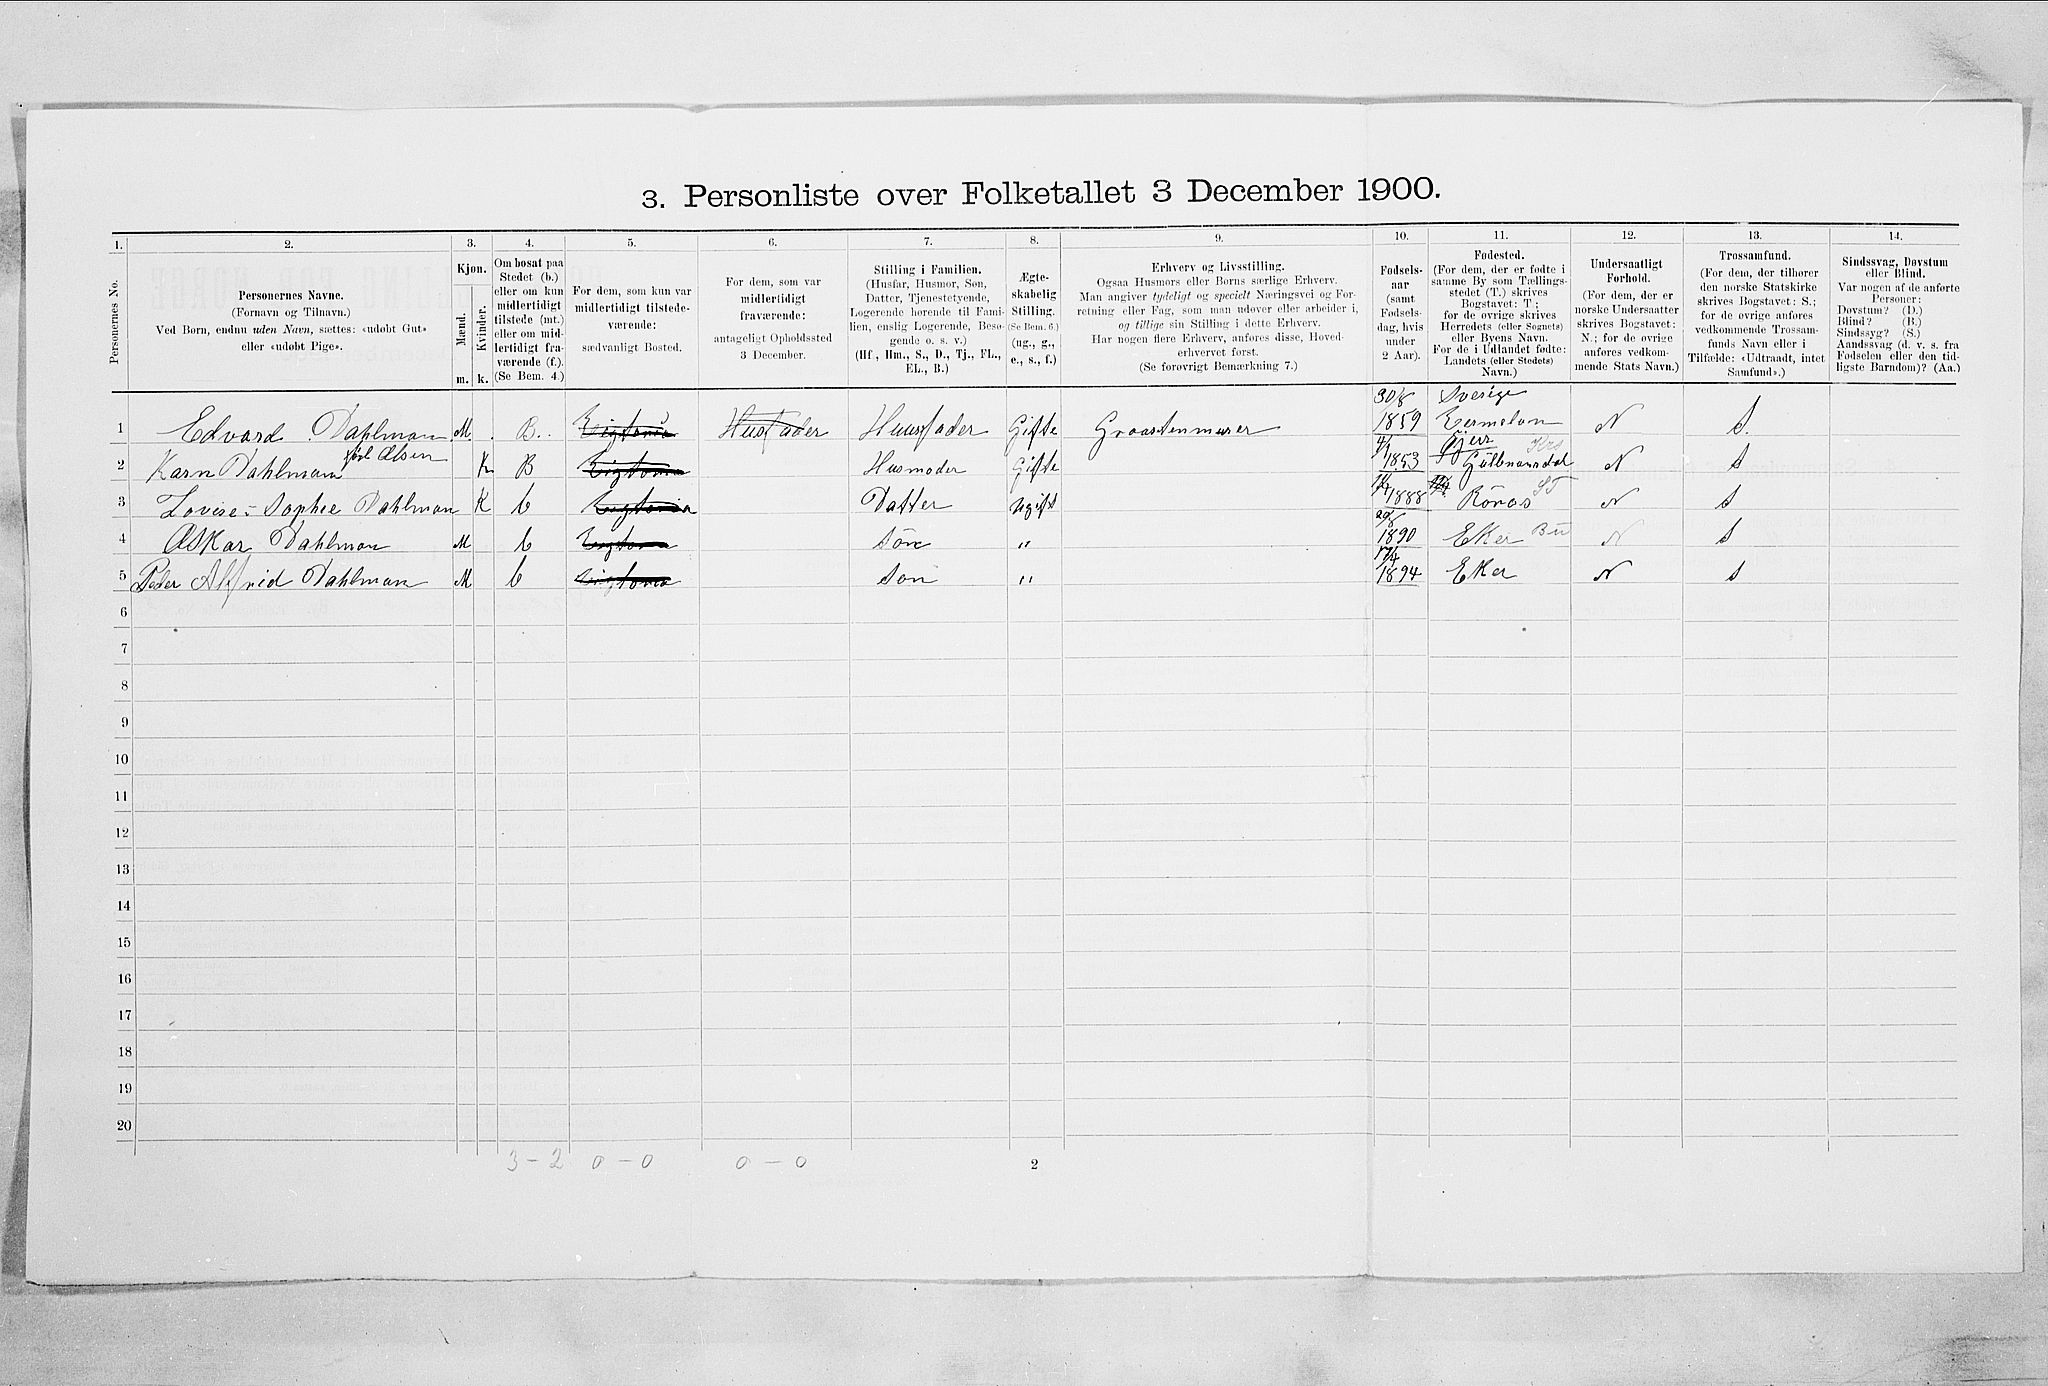 3. Personliste over Folketallet 3 December 1900.
1. 2. 3. 4. 5. 6. 7. 8. 9. 10. 11. 12. 13. 14.
Personernes No.
Personernes Navne.
(Fornavn og Tilnavn.)
Ved Børn, endnu uden Navn, sættes: «udøbt Gut»
eller «udøbt Pige».
Kjøn.
Mænd.
Kvinder.
m. k.
Om bosat paa
Stedet (b.)
eller om kun
midlertidigt
tilstede (mt.)
eller om mid-
lertidigt fra-
værende (f.).
(Se Bem. 4.)
For dem, som kun var
midlertidigt tilstede-
værende:
sædvanligt Bosted.
For dem, som var
midlertidigt
fraværende:
antageligt Opholdssted
3 December.
Stilling i Familien.
(Husfar, Husmor, Søn,
Datter, Tjenestetyende,
Logerende hørende til Fami-
lien, enslig Logerende, Besø-
gende o. s. v.)
(Hf., Hm., S., D., Tj., FL.,
EL., B.)
Ægte-
skabelig
Stilling.
(Se Bem. 6.)
(ug., g.,
e., s., f.)
Erhverv og Livsstilling.
Ogsaa Husmors eller Børns særlige Erhverv.
Man angiver tydeligt og specielt Næringsvei og For-
retning eller Fag, som man udøver eller arbeider i,
og tillige sin Stilling i dette Erhverv.
Har nogen flere Erhverv, anføres disse, Hoved-
erhvervet først.
(Se forøvrigt Bemærkning 7.)
Fødsels-
aar
(samt
Fødsels-
dag, hvis
under
2 Aar).
Fødested.
(For dem, der er fødte i
samme By som Tællings-
stedet (T.) skrives
Bogstavet: T;
for de øvrige skrives
Herredets (eller Sognets)
eller Byens Navn.
For de i Udlandet fødte:
Landets (eller Stedets)
Navn.)
Undersaatligt
Forhold.
(For dem, der er
norske Undersaatter
skrives Bogstavet:
N.; for de øvrige
anføres vedkom-
mende Stats Navn.)
Trossamfund.
(For dem, der tilhører
den norske Statskirke
skrives Bogstavet: S.;
for de øvrige anføres
vedkommende Trossam-
funds Navn eller i
Tilfælde: «Udtraadt, intet
Samfund».)
Sindssvag, Døvstum
eller Blind.
Var nogen af de anførte
Personer:
Døvstum? (D.)
Blind? (B.)
Sindssyg? (S.)
Aandssvag (d. v. s. fra
Fødselen eller den tid-
ligste Barndom)? (Aa.)
30/8 Sverige
1 Edvard Dahlman M B. Husfader Huusfader Gifte Graastenmurer 1859 N S.
født Olsen
2 Karn Dahlman K B Husmoder Gifte 4/1 1853 N S
3 Lovise Sophie Dahlman K b Datter ugift 1888 Röros ST N S
4 Oskar Dahlman M b sön " 1890 Eker Bu N S
5 Peder Alfrid Dahlman M b sön " 17/4 1894 Eker N S
6
7
8
9
10
11
12
13
14
15
16
17
18
19
20
3-2 0-0 0-0 2